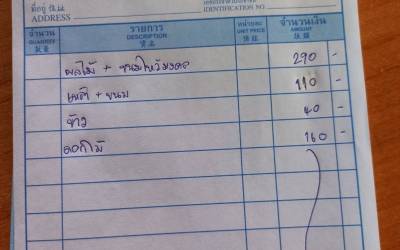 ที่อยู่ 住址
ADDRESS
IDENTIFICATION NO
จำนวน รายการ หน่วยละ จำนวนเงิน
QUANTITY DESCRIPTION UNIT PRICE AMOUNT
數量 貨名 價銀
ผลไม้ + ขนมไหว้มงคล 290 -
เหล้า + ขนม 110 -
ข้าว 40 -
ดอกไม้ 160 -